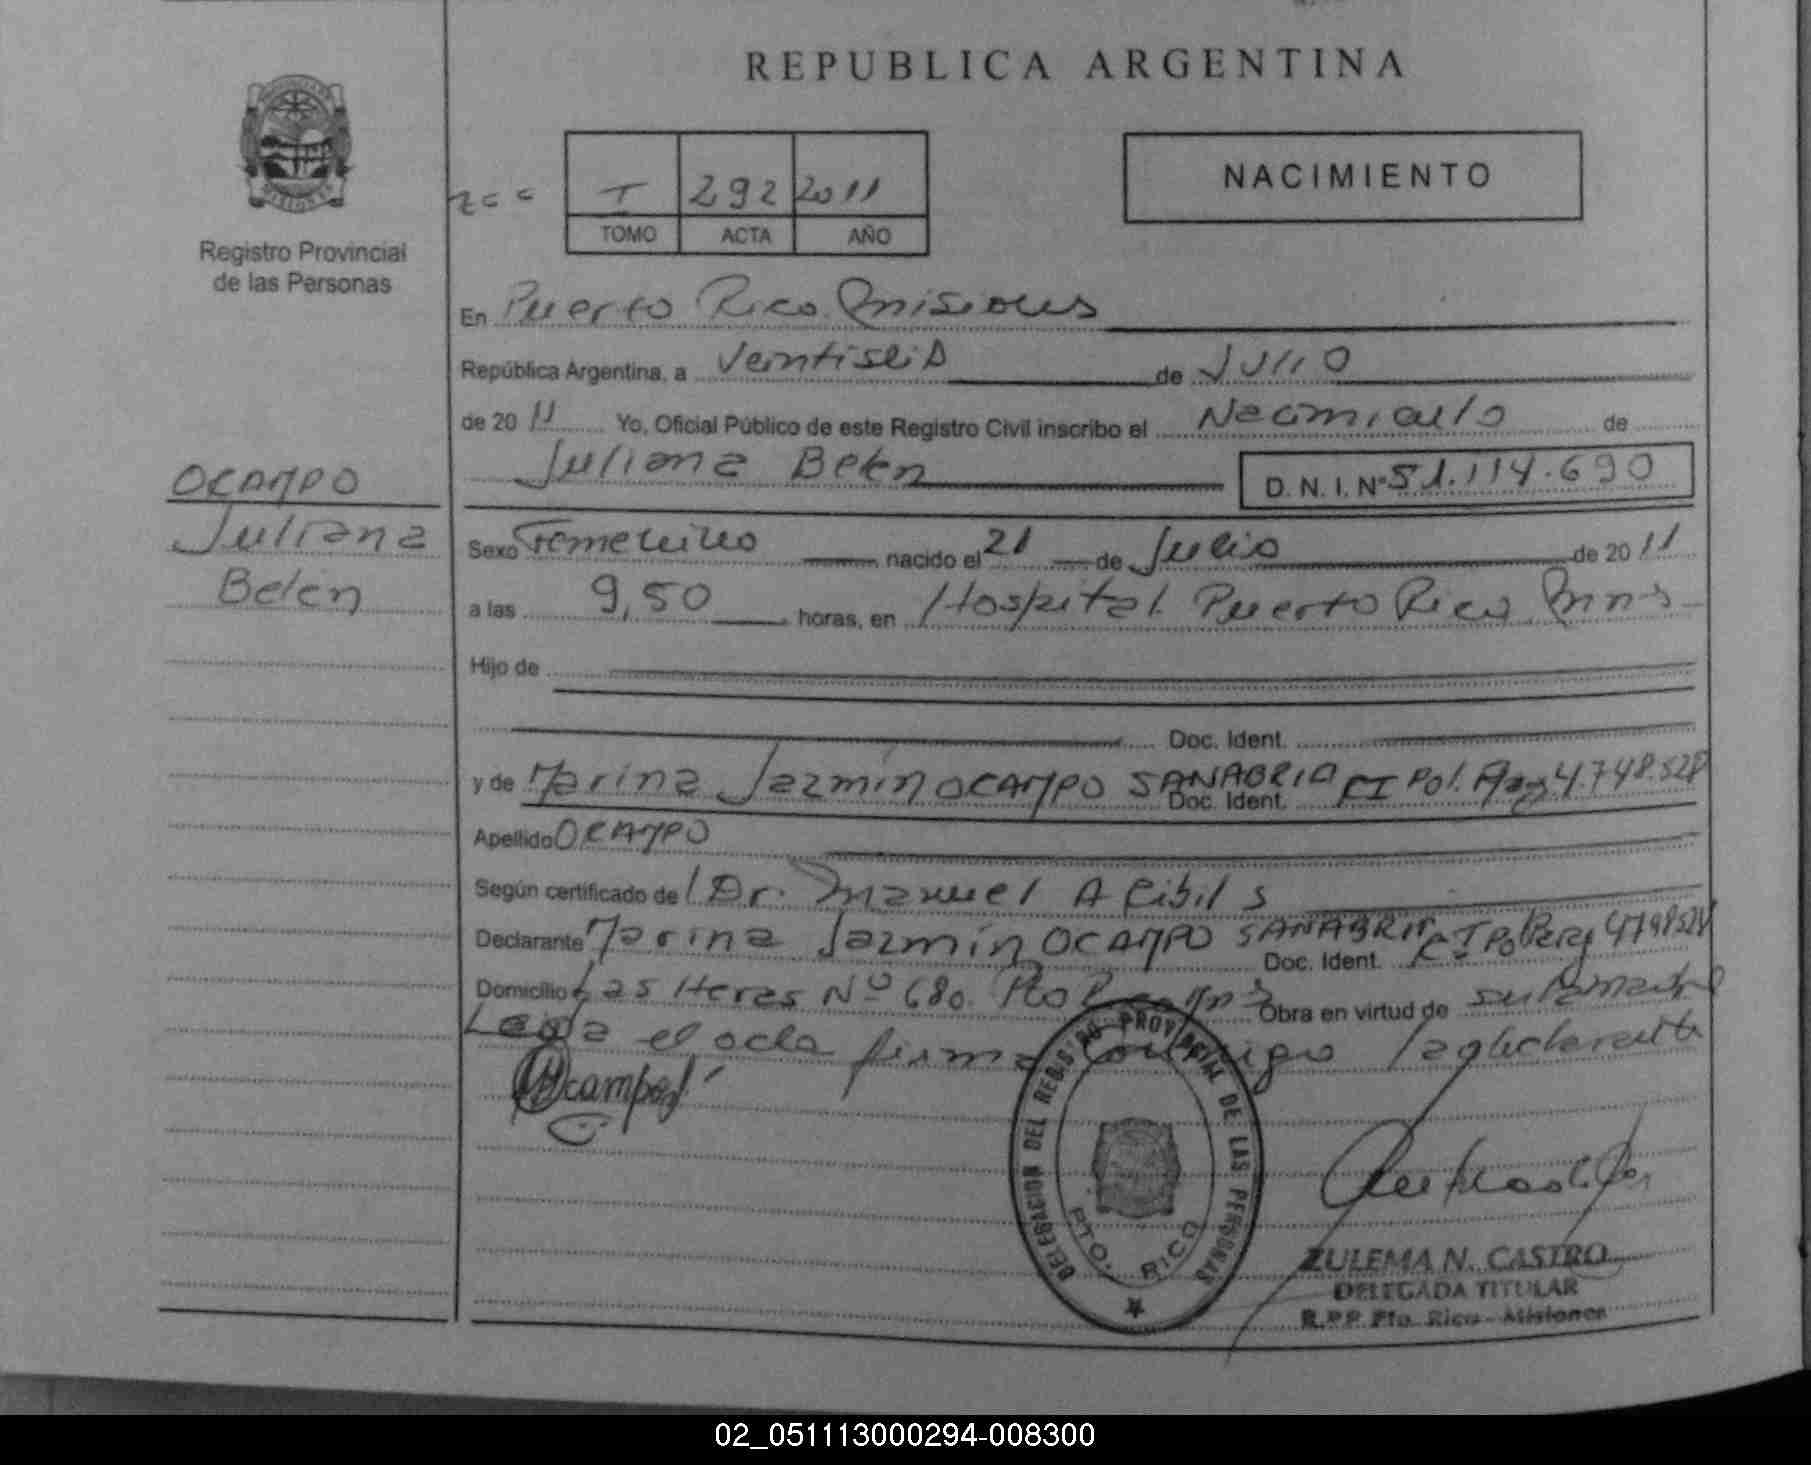 REPUBLICA ARGENTINA
NACIMIENTO
I 292 2011
TOMO ACTA AÑO
Registro Provincial
de las Personas
En Puerto Rico Misiones
República Argentina, a Veintiseis de Julio
de 20 11 Yo, Oficial Público de este Registro Civil inscribo el Nacimiento de
Juliana Belen D. N. I. Nº 51.114.690
OCAMPO
Juliana
Belén
Sexo Femenino nacido el 21 de Julio de 20 11
a las 9,50 horas, en Hospital Puerto Rico Mns
Hijo de
Doc. Ident.
y de Marina Jazmín OCAMPO SANABRIA Doc. Ident. CI Pol. 4.748.528
Apellido OCAMPO
Según certificado de Dr. Manuel A
Declarante Marina Jazmín OCAMPO SANABRIA Doc. Ident. CI Pol
Domicilio Las Heras Nº 680 Obra en virtud de
el acta firma conmigo la declarante
Ocampo
DELEGACION DEL REGISTRO PROVINCIAL DE LAS PERSONAS
PTO. RICO
ZULEMA N. CASTRO
DELEGADA TITULAR
R.P.P. Pto. Rico - Misiones
02_051113000294-008300